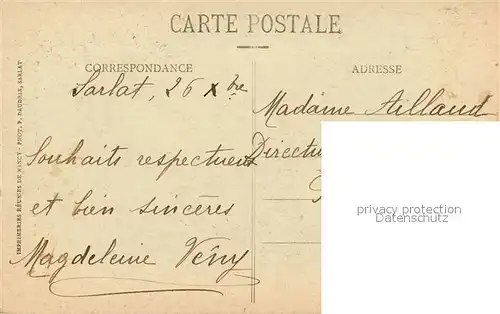 CARTE POSTALE
CORRESPONDANCE
ADRESSE
Sarlat, 26 Xbre
Souhaits respectueux
et bien sincères
Magdeleine Vény
Madame Aillaud
privacy protection
Datenschutz
IMPRIMERIES RÉUNIES DE NANCY - PHOT. P. DAUDRIX, SARLAT